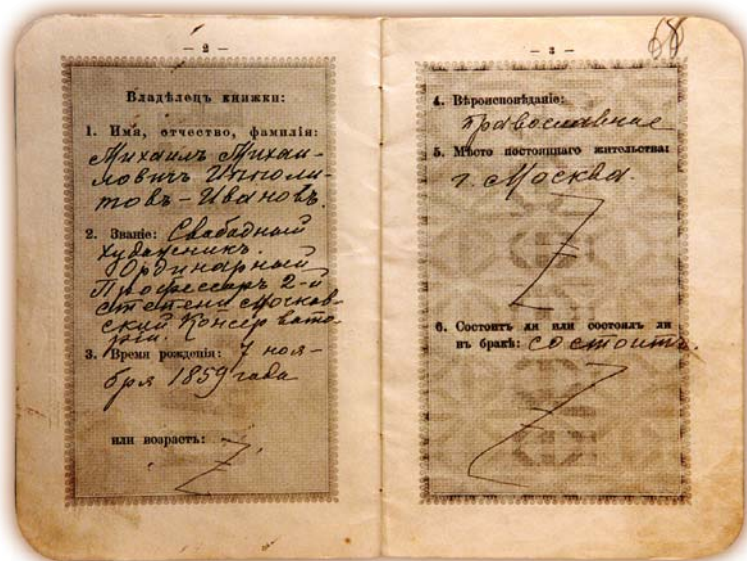 — 2 —
Владѣлецъ книжки:
1. Имя, отчество, фамилія:
Михаилъ Михаи-
ловичъ Ипполи-
товъ-Ивановъ.
2. Званіе: Свободный
художникъ.
Ординарный
Профессоръ 2-й
степени Москов-
ской Консервато-
ріи.
3. Время рожденія: 7 ноя-
бря 1859 года
или возрастъ:
— 3 —
68
4. Вѣроисповѣданіе:
православное
5. Мѣсто постояннаго жительства:
г. Москва.
6. Состоитъ ли или состоялъ ли
въ бракѣ: состоитъ.